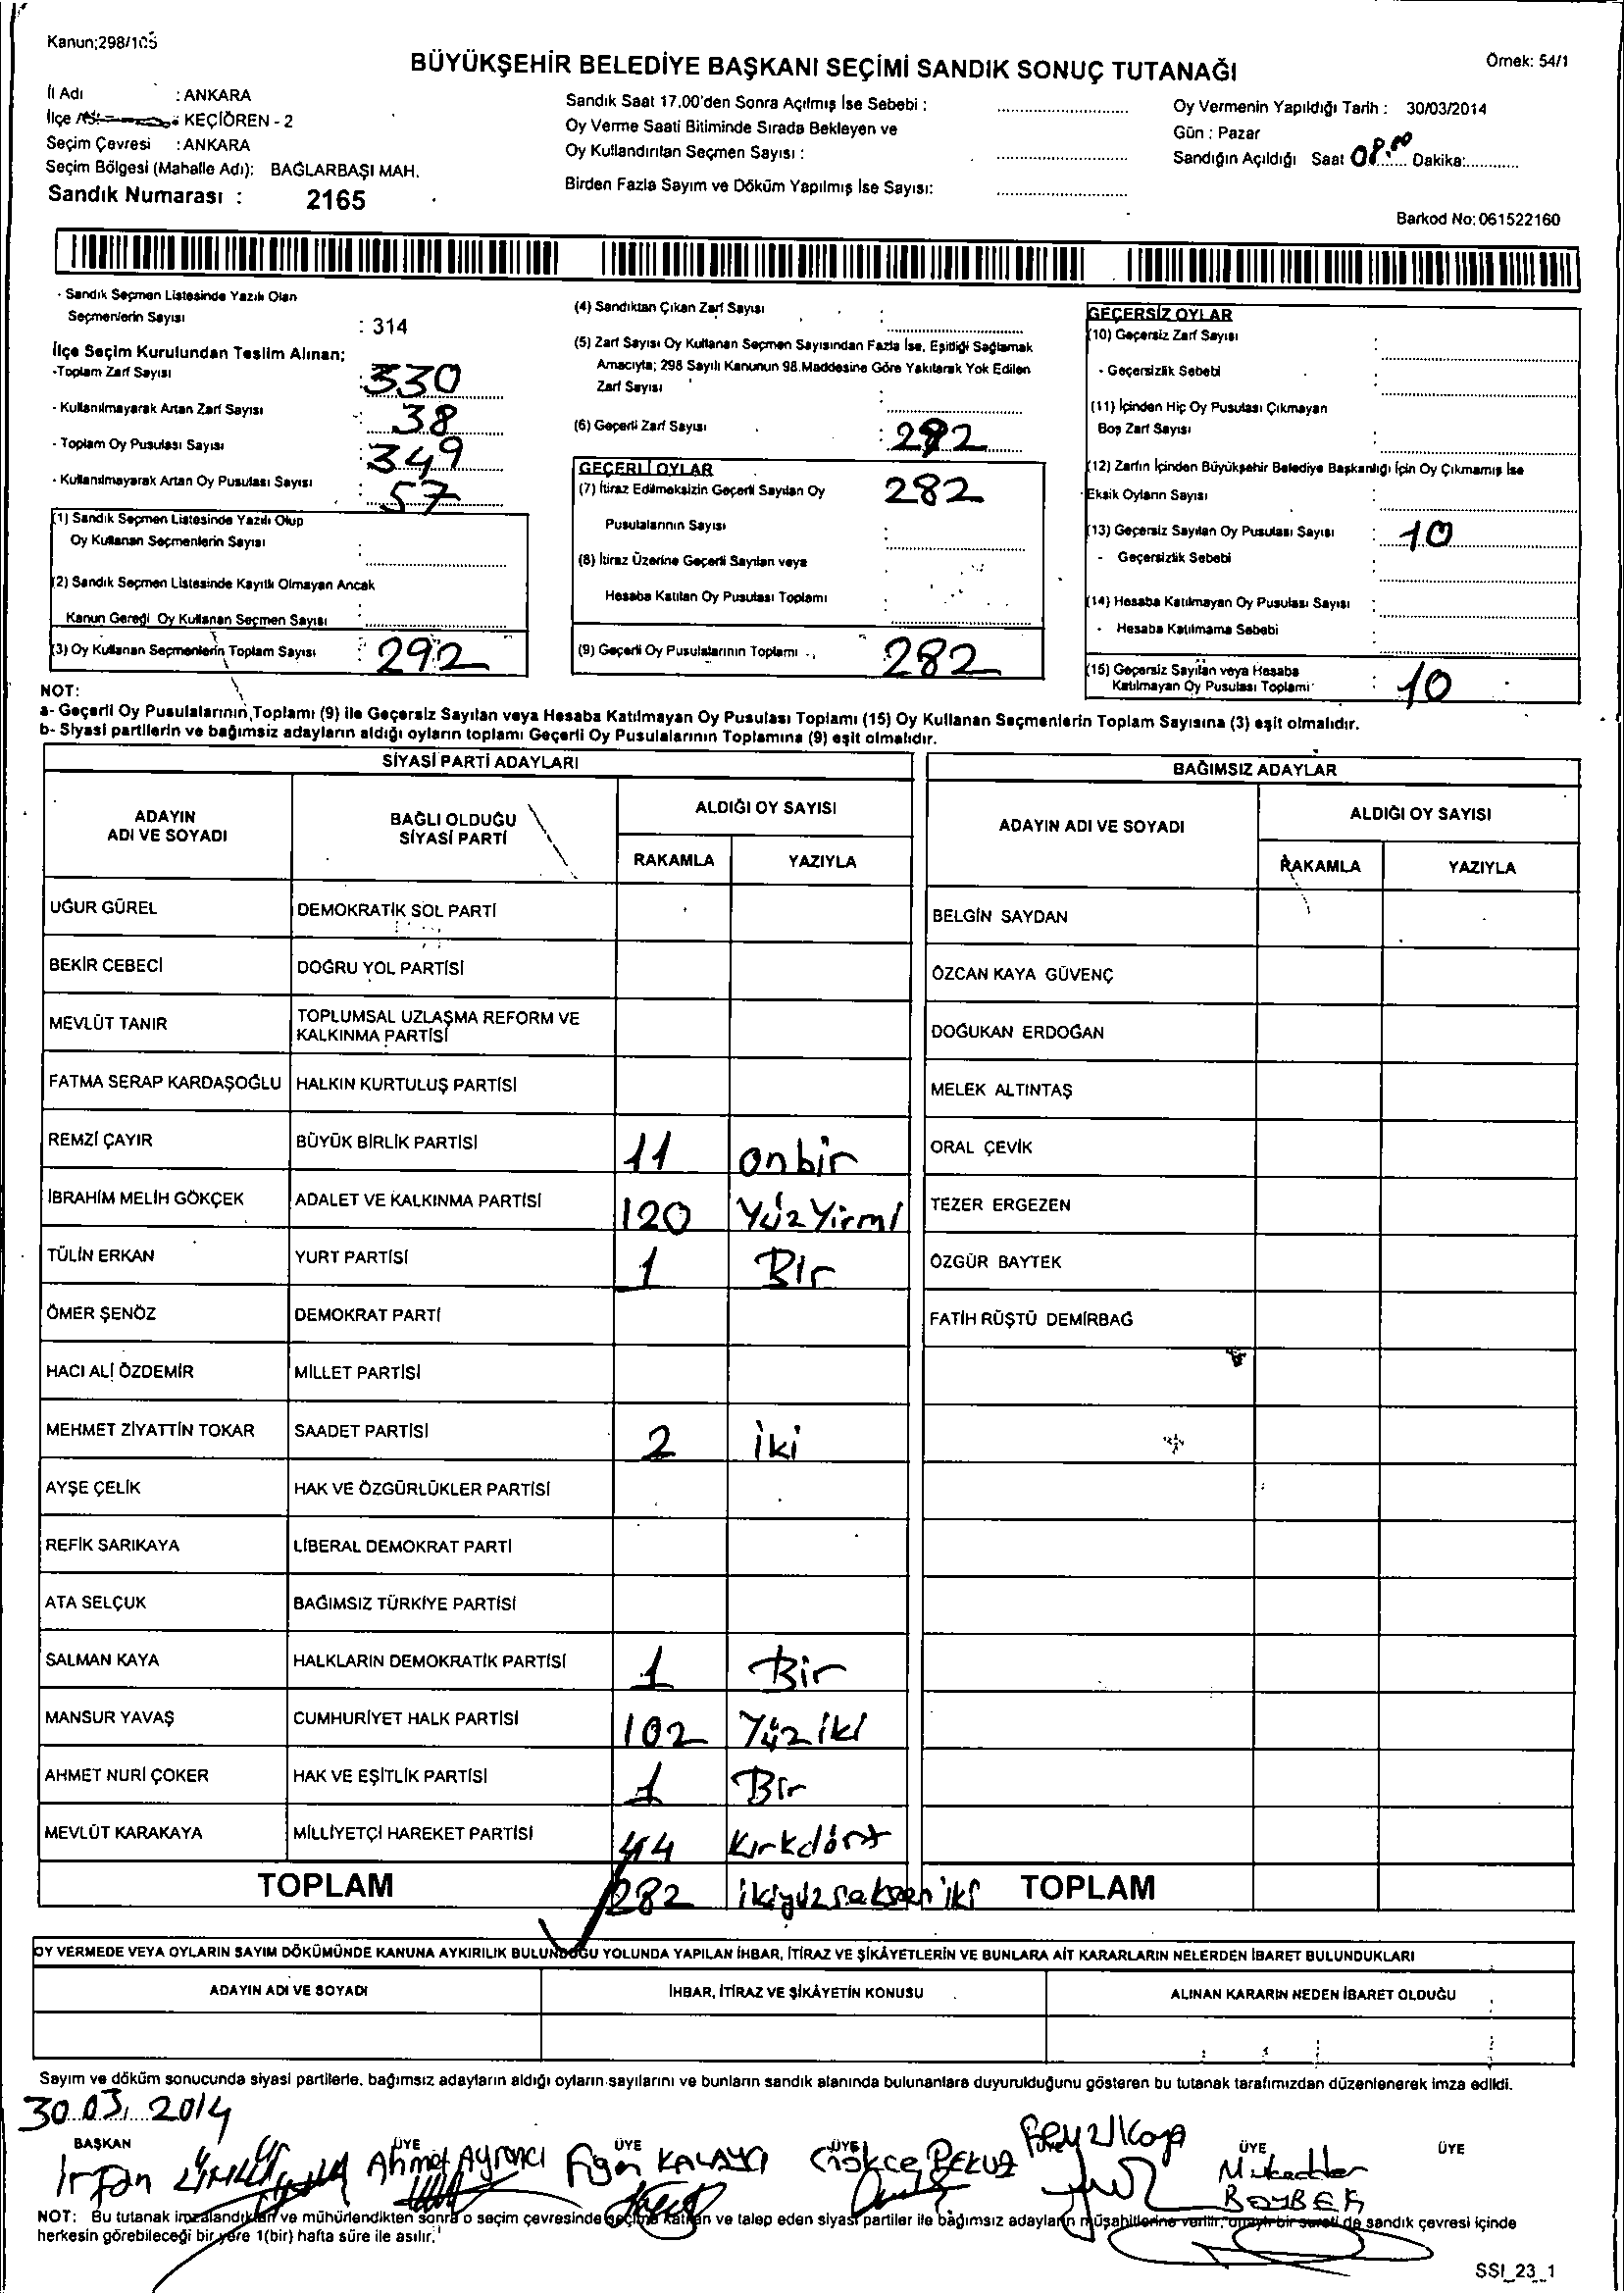 Kanun;298/105
Örnek: 54/1
BÜYÜKŞEHİR BELEDİYE BAŞKANI SEÇİMİ SANDIK SONUÇ TUTANAĞI
İl Adı : ANKARA
İlçe : KEÇİÖREN - 2
Seçim Çevresi : ANKARA
Seçim Bölgesi (Mahalle Adı): BAĞLARBAŞI MAH.
Sandık Numarası : 2165
Sandık Saat 17.00'den Sonra Açılmış İse Sebebi :
Oy Verme Saati Bitiminde Sırada Bekleyen ve
Oy Kullandırılan Seçmen Sayısı :
Birden Fazla Sayım ve Döküm Yapılmış İse Sayısı:
Oy Vermenin Yapıldığı Tarih : 30/03/2014
Gün : Pazar
Sandığın Açıldığı Saat 08.00 Dakika:............
Barkod No: 061522160
- Sandık Seçmen Listesinde Yazılı Olan
Seçmenlerin Sayısı : 314
İlçe Seçim Kurulundan Teslim Alınan;
-Toplam Zarf Sayısı : 330
- Kullanılmayarak Artan Zarf Sayısı : 38
- Toplam Oy Pusulası Sayısı : 349
- Kullanılmayarak Artan Oy Pusulası Sayısı : 57
(1) Sandık Seçmen Listesinde Yazılı Olup
Oy Kullanan Seçmenlerin Sayısı :
(2) Sandık Seçmen Listesinde Kayıtlı Olmayan Ancak
Kanun Gereği Oy Kullanan Seçmen Sayısı :
(3) Oy Kullanan Seçmenlerin Toplam Sayısı : 292
(4) Sandıktan Çıkan Zarf Sayısı :
(5) Zarf Sayısı Oy Kullanan Seçmen Sayısından Fazla İse, Eşitliği Sağlamak
Amacıyla; 298 Sayılı Kanunun 98.Maddesine Göre Yakılarak Yok Edilen
Zarf Sayısı :
(6) Geçerli Zarf Sayısı : 292
GEÇERLİ OYLAR
(7) İtiraz Edilmeksizin Geçerli Sayılan Oy 282
Pusulalarının Sayısı :
(8) İtiraz Üzerine Geçerli Sayılan veya
Hesaba Katılan Oy Pusulası Toplamı :
(9) Geçerli Oy Pusulalarının Toplamı : 282
GEÇERSİZ OYLAR
(10) Geçersiz Zarf Sayısı :
- Geçersizlik Sebebi :
(11) İçinden Hiç Oy Pusulası Çıkmayan
Boş Zarf Sayısı :
(12) Zarfın İçinden Büyükşehir Belediye Başkanlığı İçin Oy Çıkmamış İse
Eksik Oyların Sayısı :
(13) Geçersiz Sayılan Oy Pusulası Sayısı : 10
- Geçersizlik Sebebi
(14) Hesaba Katılmayan Oy Pusulası Sayısı :
- Hesaba Katılmama Sebebi :
(15) Geçersiz Sayılan veya Hesaba
Katılmayan Oy Pusulası Toplamı : 10
NOT:
a- Geçerli Oy Pusulalarının Toplamı (9) ile Geçersiz Sayılan veya Hesaba Katılmayan Oy Pusulası Toplamı (15) Oy Kullanan Seçmenlerin Toplam Sayısına (3) eşit olmalıdır.
b- Siyasi partilerin ve bağımsız adayların aldığı oyların toplamı Geçerli Oy Pusulalarının Toplamına (9) eşit olmalıdır.
SİYASİ PARTİ ADAYLARI
ADAYIN ADI VE SOYADI BAĞLI OLDUĞU SİYASİ PARTİ ALDIĞI OY SAYISI
RAKAMLA YAZIYLA
UĞUR GÜREL DEMOKRATİK SOL PARTİ
BEKİR CEBECİ DOĞRU YOL PARTİSİ
MEVLÜT TANIR TOPLUMSAL UZLAŞMA REFORM VE KALKINMA PARTİSİ
FATMA SERAP KARDAŞOĞLU HALKIN KURTULUŞ PARTİSİ
REMZİ ÇAYIR BÜYÜK BİRLİK PARTİSİ 11 onbir
İBRAHİM MELİH GÖKÇEK ADALET VE KALKINMA PARTİSİ 120 YüzYirmi
TÜLİN ERKAN YURT PARTİSİ 1 Bir
ÖMER ŞENÖZ DEMOKRAT PARTİ
HACI ALİ ÖZDEMİR MİLLET PARTİSİ
MEHMET ZİYATTİN TOKAR SAADET PARTİSİ 2 iki
AYŞE ÇELİK HAK VE ÖZGÜRLÜKLER PARTİSİ
REFİK SARIKAYA LİBERAL DEMOKRAT PARTİ
ATA SELÇUK BAĞIMSIZ TÜRKİYE PARTİSİ
SALMAN KAYA HALKLARIN DEMOKRATİK PARTİSİ 1 Bir
MANSUR YAVAŞ CUMHURİYET HALK PARTİSİ 102 Yüziki
AHMET NURİ ÇOKER HAK VE EŞİTLİK PARTİSİ 1 Bir
MEVLÜT KARAKAYA MİLLİYETÇİ HAREKET PARTİSİ 44 Kırkdört
TOPLAM 282 ikiyüzseksen iki
BAĞIMSIZ ADAYLAR
ADAYIN ADI VE SOYADI ALDIĞI OY SAYISI
RAKAMLA YAZIYLA
BELGİN SAYDAN
ÖZCAN KAYA GÜVENÇ
DOĞUKAN ERDOĞAN
MELEK ALTINTAŞ
ORAL ÇEVİK
TEZER ERGEZEN
ÖZGÜR BAYTEK
FATİH RÜŞTÜ DEMİRBAĞ
TOPLAM
OY VERMEDE VEYA OYLARIN SAYIM DÖKÜMÜNDE KANUNA AYKIRILIK BULUNDUĞU YOLUNDA YAPILAN İHBAR, İTİRAZ VE ŞİKÂYETLERİN VE BUNLARA AİT KARARLARIN NELERDEN İBARET BULUNDUKLARI
ADAYIN ADI VE SOYADI İHBAR, İTİRAZ VE ŞİKÂYETİN KONUSU ALINAN KARARIN NEDEN İBARET OLDUĞU
Sayım ve döküm sonucunda siyasi partilerle, bağımsız adayların aldığı oyların sayılarını ve bunların sandık alanında bulunanlara duyurulduğunu gösteren bu tutanak tarafımızdan düzenlenerek imza edildi.
30.03.2014
BAŞKAN ÜYE ÜYE ÜYE ÜYE ÜYE ÜYE
İrfan Ahmet Ayrancı Figen KALAYCI Gökçe Mukadder
NOT: Bu tutanak imzalandıktan ve mühürlendikten sonra o seçim çevresinde seçime katılan ve talep eden siyasi partiler ile bağımsız adayların müşahitlerine verilir, onaylı bir sureti de sandık çevresi içinde
herkesin görebileceği bir yere 1(bir) hafta süre ile asılır.
SSI_23_1